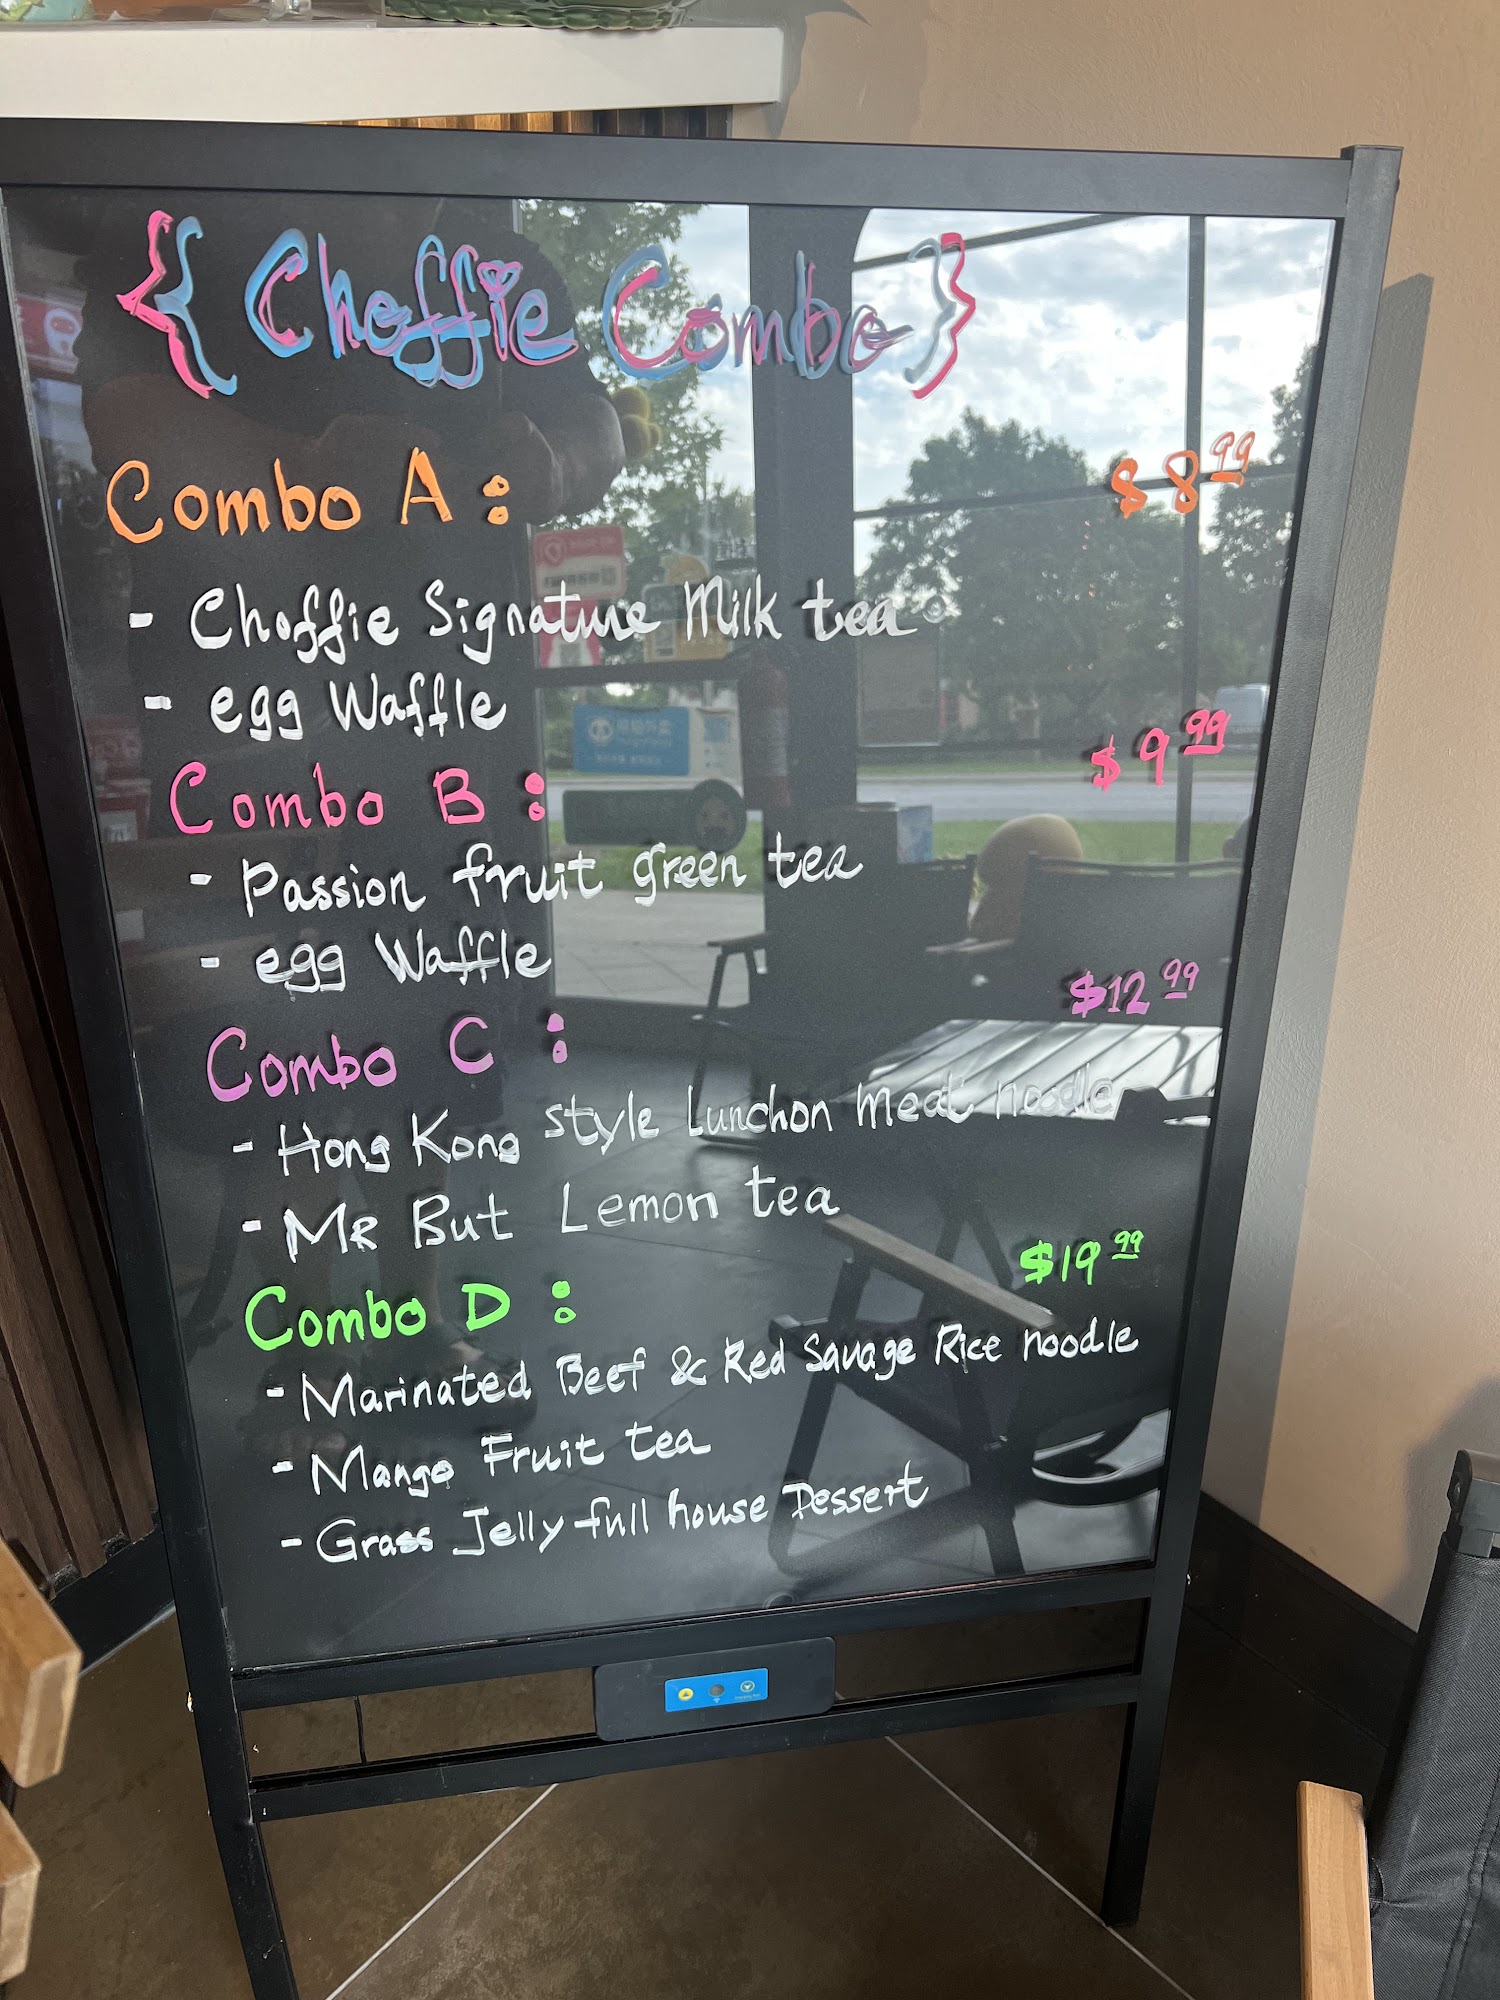 { Choffie Combo }
Combo A : $8.99
- Choffie Signature Milk tea
- egg Waffle
Combo B : $9.99
- Passion fruit green tea
- egg Waffle
Combo C : $12.99
- Hong Kong style Lunchon meat noodle
- MR But Lemon tea
Combo D : $19.99
- Marinated Beef & Red Savage Rice noodle
- Mango Fruit tea
- Grass Jelly full house Dessert